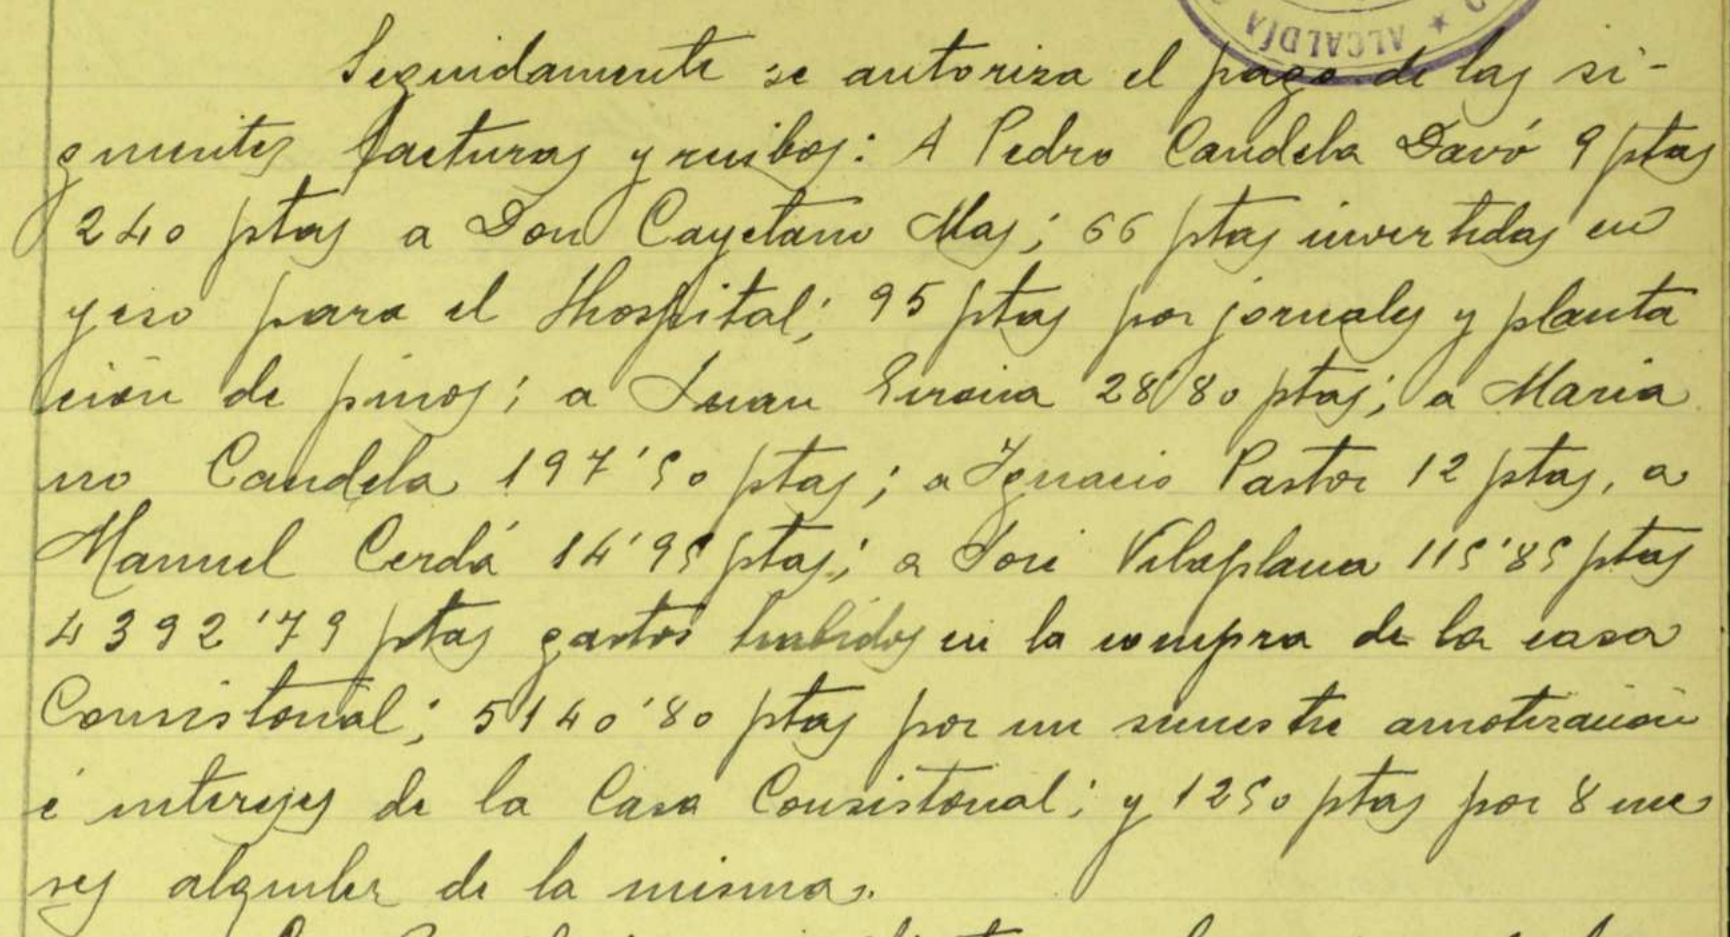 ALCALDÍA
Seguidamente se autoriza el pago de las si-
guientes facturas y recibos: A Pedro Candela Davó 9 ptas
240 ptas a Don Cayetano Mas; 66 ptas invertidas en
yeso para el Hospital; 95 ptas por jornales y planta
ción de pinos; a Juan 28'80 ptas; a Maria
no Candela 197'50 ptas; a Ignacio Pastor 12 ptas, a
Manuel Cerdá 14'95 ptas; a José Vilaplana 115'85 ptas
4392'79 ptas gastos habidos en la compra de la casa
Consistorial; 5140'80 ptas por un semestre amotización
é intereses de la Casa Consistorial; y 1250 ptas por 8 me
ses alquiler de la misma.